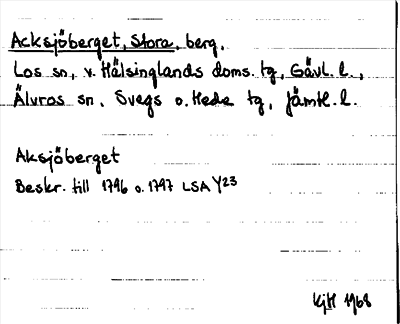 Acksjöberget, Stora, berg,
Los sn, v. Hälsinglands doms. tg, Gävl. l.,
Älvros sn, Svegs o. Hede tg, Jämtl. l.
Aksjöberget
Beskr. till 1796 o. 1797 LSA Y23
KjH 1968